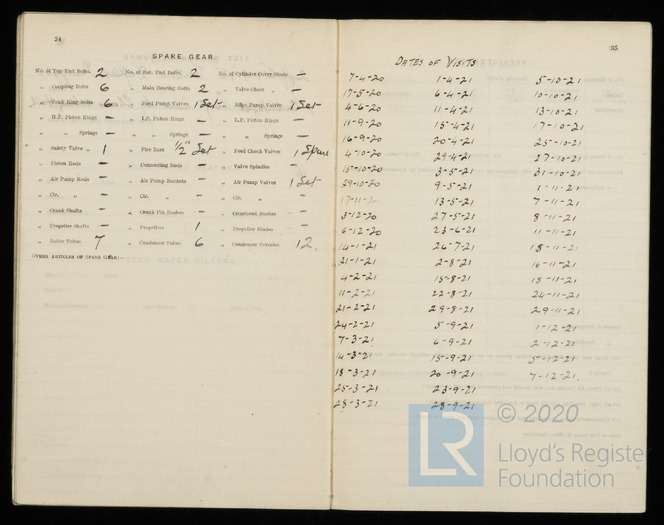 34
SPARE GEAR.
No. of Top End Bolts. 2 No. of Bot. End Bolts. 2 No. of Cylinder Cover Studs —
„ Coupling Bolts 6 „ Main Bearing Bolts 2 „ Valve Chest „ —
„ Junk Ring Bolts 6 „ Feed Pump Valves 1 Set „ Bilge Pump Valves 1 Set
„ H.P. Piston Rings — „ I.P. Piston Rings — „ L.P. Piston Rings —
„ „ Springs — „ „ Springs — „ „ Springs —
„ Safety Valve „ 1 „ Fire Bars ½ Set „ Feed Check Valves 1 Spare
„ Piston Rods — „ Connecting Rods — „ Valve Spindles —
„ Air Pump Rods — „ Air Pump Buckets — „ Air Pump Valves 1 Set
„ Cir. „ — „ Cir. „ — „ Cir. „ —
„ Crank Shafts — „ Crank Pin Bushes — „ Crosshead Bushes —
„ Propeller Shafts — „ Propellers 1 „ Propeller Blades —
„ Boiler Tubes 7 „ Condenser Tubes 6 „ Condenser Ferrules 12.
OTHER ARTICLES OF SPARE GEAR:—
35
DATES OF VISITS
7-4-20 1-4-21 5-10-21
17-5-20 6-4-21 10-10-21
4-6-20 11-4-21 13-10-21
11-9-20 15-4-21 17-10-21
16-9-20 20-4-21 25-10-21
4-10-20 29-4-21 27-10-21
15-10-20 3-5-21 31-10-21
29-10-20 9-5-21 1-11-21
17-11-2 13-5-21 7-11-21
3-12-20 27-5-21 8-11-21
6-12-20 23-6-21 11-11-21
14-1-21 26-7-21 15-11-21
21-1-21 2-8-21 16-11-21
4-2-21 15-8-21 18-11-21
11-2-21 22-8-21 24-11-21
21-2-21 29-8-21 29-11-21
24-2-21 5-9-21 1-12-21
7-3-21 6-9-21 2-12-21
14-3-21 15-9-21 5-12-21
18-3-21 20-9-21 7-12-21.
25-3-21 23-9-21
28-3-21 28-9-21
© 2020
LR Lloyd's Register
Foundation